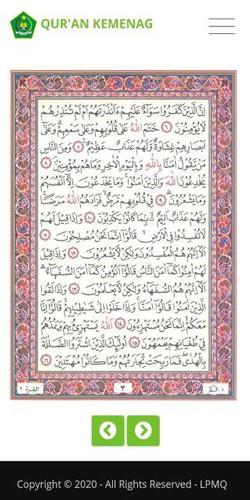 QUR'AN KEMENAG
اِنَّ الَّذِيْنَ كَفَرُوْا سَوَاۤءٌ عَلَيْهِمْ ءَاَنْذَرْتَهُمْ اَمْ لَمْ تُنْذِرْهُمْ
لَا يُؤْمِنُوْنَ ٦ خَتَمَ اللّٰهُ عَلٰى قُلُوْبِهِمْ وَعَلٰى سَمْعِهِمْ وَعَلٰٓى
اَبْصَارِهِمْ غِشَاوَةٌ وَّلَهُمْ عَذَابٌ عَظِيْمٌ ٧ وَمِنَ النَّاسِ
مَنْ يَّقُوْلُ اٰمَنَّا بِاللّٰهِ وَبِالْيَوْمِ الْاٰخِرِ وَمَا هُمْ بِمُؤْمِنِيْنَ ٨
يُخٰدِعُوْنَ اللّٰهَ وَالَّذِيْنَ اٰمَنُوْا وَمَا يَخْدَعُوْنَ اِلَّآ اَنْفُسَهُمْ
وَمَا يَشْعُرُوْنَ ٩ فِيْ قُلُوْبِهِمْ مَّرَضٌ فَزَادَهُمُ اللّٰهُ مَرَضًا
وَلَهُمْ عَذَابٌ اَلِيْمٌ بِمَا كَانُوْا يَكْذِبُوْنَ ١٠ وَاِذَا قِيْلَ لَهُمْ
لَا تُفْسِدُوْا فِى الْاَرْضِ قَالُوْٓا اِنَّمَا نَحْنُ مُصْلِحُوْنَ ١١
اَلَآ اِنَّهُمْ هُمُ الْمُفْسِدُوْنَ وَلٰكِنْ لَّا يَشْعُرُوْنَ ١٢ وَاِذَا قِيْلَ
لَهُمْ اٰمِنُوْا كَمَآ اٰمَنَ النَّاسُ قَالُوْٓا اَنُؤْمِنُ كَمَآ اٰمَنَ السُّفَهَاۤءُ
اَلَآ اِنَّهُمْ هُمُ السُّفَهَاۤءُ وَلٰكِنْ لَّا يَعْلَمُوْنَ ١٣ وَاِذَا لَقُوا
الَّذِيْنَ اٰمَنُوْا قَالُوْٓا اٰمَنَّا وَاِذَا خَلَوْا اِلٰى شَيٰطِيْنِهِمْ قَالُوْٓا اِنَّا
مَعَكُمْ اِنَّمَا نَحْنُ مُسْتَهْزِءُوْنَ ١٤ اَللّٰهُ يَسْتَهْزِئُ بِهِمْ وَيَمُدُّهُمْ
فِيْ طُغْيَانِهِمْ يَعْمَهُوْنَ ١٥ اُولٰۤىِٕكَ الَّذِيْنَ اشْتَرَوُا الضَّلٰلَةَ
بِالْهُدٰى فَمَا رَبِحَتْ تِّجَارَتُهُمْ وَمَا كَانُوْا مُهْتَدِيْنَ ١٦
٣
البقرة ٢
Copyright © 2020 - All Rights Reserved - LPMQ